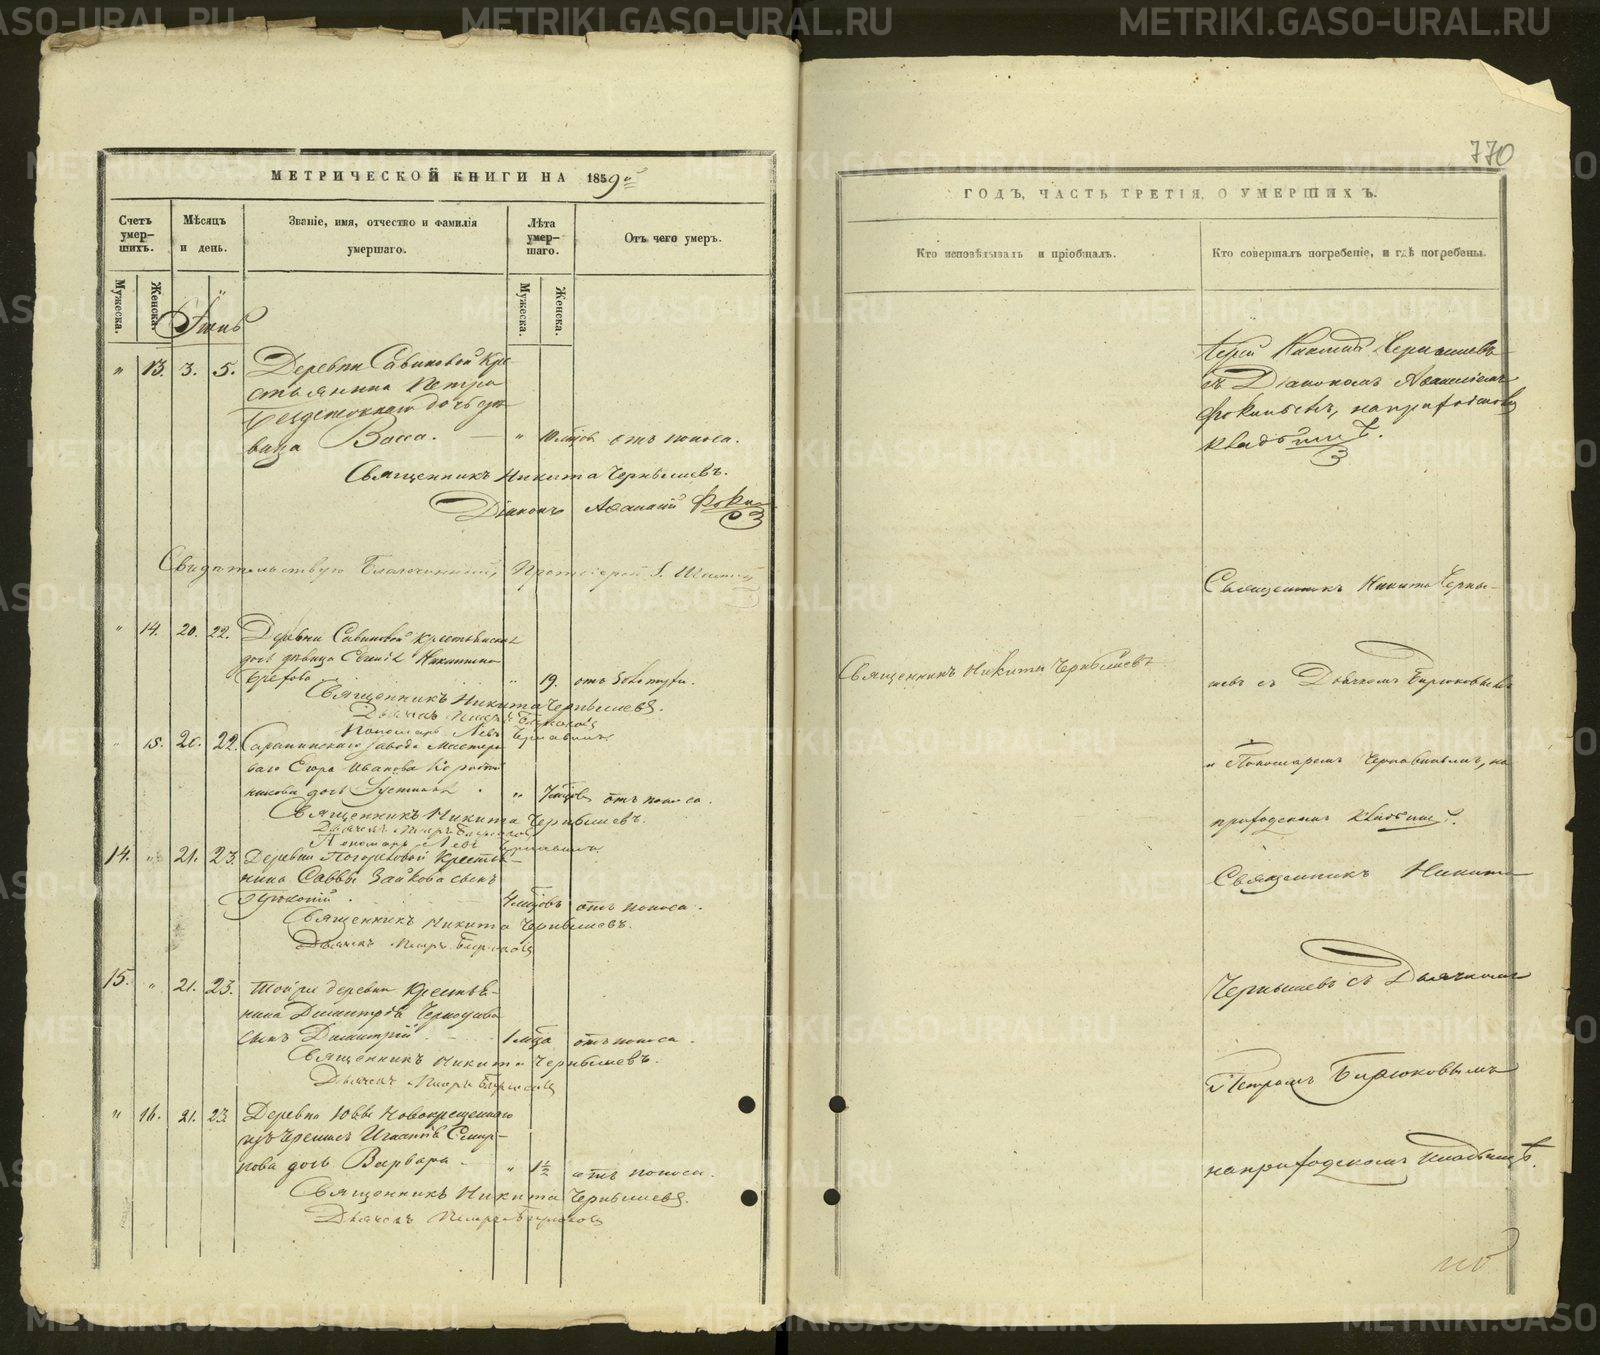 МЕТРИЧЕСКОЙ КНИГИ НА 1859й
Счетъ умер-шихъ.
Мѣсяцъ и день.
Званіе, имя, отчество и фамилія умершаго.
Лѣта умер-шаго.
Отъ чего умеръ.
Мужеска.
Женска.
Мужеска.
Женска.
Іюнь
" 13. 3. 5. Деревни Савиновой кре
стьянина Петра
дочь дѣ
вица Васса. " отъ поноса.
Священникъ Никита Чернышевъ.
Діаконъ Аѳанасій Фокинъ
Свидетельствую Благочинный, Протоіерей І.
" 14. 20. 22. Деревни Савиновой крестьянская
дочь дѣвица Никитина
" 19. отъ
Священникъ Никита Чернышевъ.
Дьячекъ Петръ Бирюковъ
Пономарь Левъ Чернавинъ.
" 15. 20. 22. Сарапинскаго завода мастеро
ваго Егора Иванова
дочь Іустина " отъ поноса.
Священникъ Никита Чернышевъ.
Дьячекъ Петръ Бирюковъ
Пономарь Левъ Чернавинъ
14. " 21. 23. Деревни Погореловой крестья-
нина Саввы Зайкова сынъ
отъ поноса.
Священникъ Никита Чернышевъ.
Дьячекъ Петръ Бирюковъ
15. " 21. 23. Той же деревни крестья-
нина Димитрія
сынъ Димитрій 1 мѣсяца отъ поноса.
Священникъ Никита Чернышевъ.
Дьячекъ Петръ Бирюковъ
" 16. 21. 23. Деревни Ювы Новокрещеннаго
изъ Черемисъ Игнатія Смир-
нова дочь Варвара " 1½ отъ поноса.
Священникъ Никита Чернышевъ.
Дьячекъ Петръ Бирюковъ
770
ГОДЪ, ЧАСТЬ ТРЕТІЯ, О УМЕРШИХЪ.
Кто исповѣдывалъ и пріобщалъ.
Кто совершалъ погребеніе, и гдѣ погребены.
Іерей Никита Чернышевъ
съ Діакономъ Аѳанасіемъ
Фокинымъ, на приходскомъ
кладбищѣ.
Священникъ Никита Черны-
Священникъ Никита Чернышевъ
шевъ съ Дьячкомъ Бирюковымъ
и Пономаремъ Чернавинымъ, на
приходскомъ кладбищѣ.
Священникъ Никита
Чернышевъ съ Дьячкомъ
Петромъ Бирюковымъ
на приходскомъ кладбищѣ.
METRIKI.GASO-URAL.RU